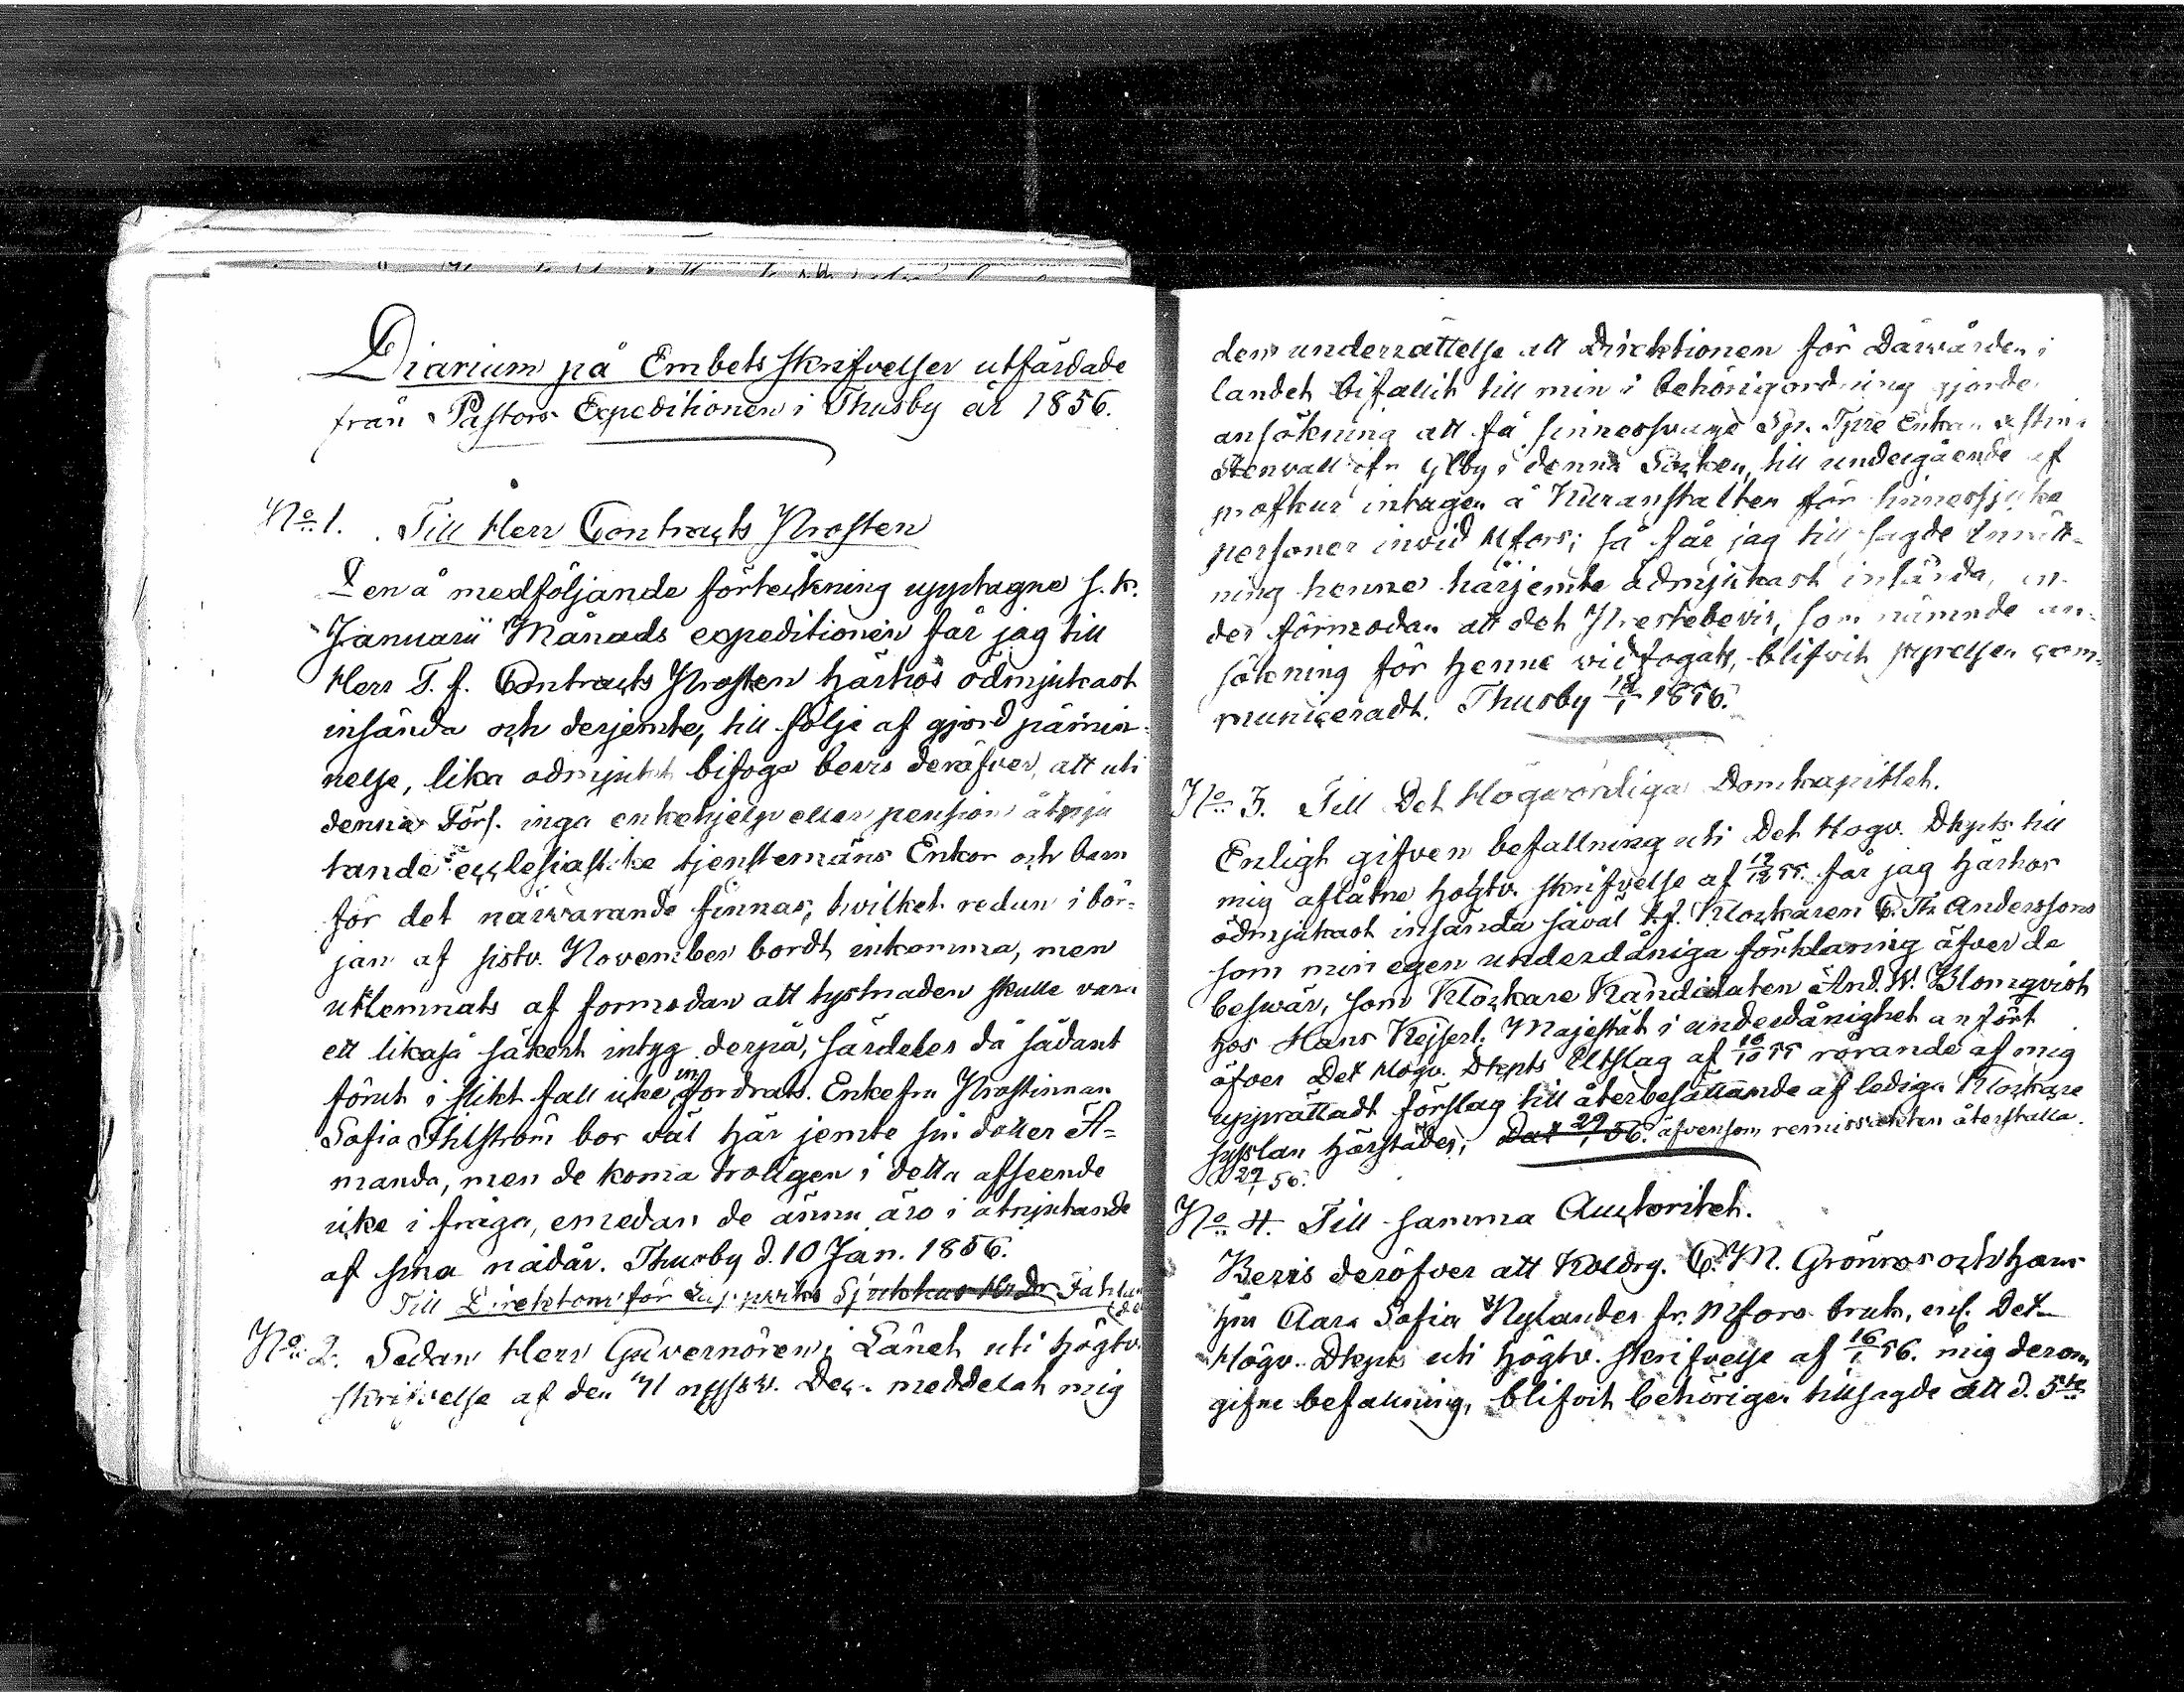 Diarium på Embets skrifvelser utfärdade
från Pastors Expeditionen i Thusby år 1856.
No 1. Till Herr Contracts Prosten
Den å medföljande förteckning upptagne s. k.
Januarii Månads expeditionen får jag till
Herr T. f. Contracts Prosten härhos ödmjukast
insända och derjemte, till följe af gjord påmin-
nelse, lika ödmjukt bifoga bevis deröfver, att uti
denna Förs. inga enkehjelp eller pension åtnju
tande ecclesiastike tjenstemäns Enkor och barn
för det närvarande finnas, hvilket redan i bör-
jan af sistv. November bordt inkomma, men
utlemnats af förmodan att tystnaden skulle vara
ett likaså säkert intyg derpå, särdeles då sådant
förut i slikt fall icke infordrats. Enkefru Prostinnan
Sofia Ahlström bor väl här jemte sin dotter A-
manda, men de komma troligen i detta afseende
icke i fråga, emedan de ännu äro i åtnjutande
af sina nådår. Thusby d. 10 Jan. 1856.
Till Direktorn för Lappviks Sjukhus Hr Dr Fahlan
No 2. Sedan Herr Guvernören i Länet uti högtv.
skrifvelse af den 31 nyssv. Dec. meddelat mig
den underrättelse att Direktionen för Dårvården i
landet bifallit till min i behörig ordning gjorde
ansökning att få sinnessvaga Enkan
Stenvall ifn Ylby i denna Socken, till undergående af
profkur intagen å Kuranstalten för sinnessjuka
personer invid Hfors; så får jag till sagde inrätt-
ning henne härjemte ödmjukast insända, un-
der förmodan att det Prestebevis, som nämnde an-
sökning för henne vidfogats, blifvit styrelsen com-
municeradt. Thusby 1856.
No 3. Till Det Högvördiga Domkapitlet.
Enligt gifven befallning uti Det Högv. Dkpts till
mig aflåtne högtv. skrifvelse af 12/12 55. får jag härhos
ödmjukast insända såväl t.f. Klockaren Anderssons
som min egen underdåniga förklaring öfver de
besvär, som Klockare Kandidaten And. W. Blomqvist
hos Hans Kejserl. Majestät i underdånighet anfört
öfver Det Högv. Dkpts Utslag af 55 rörande af mig
upprättadt förslag till återbesättande af lediga Klockare
sysslan härstädes, Dat 29/1 56. äfvensom remissakten återställa.
29/1 56.
No 4. Till samma Auctoritet.
Bevis deröfver att Koldrg. C. M. Grönros och hans
hm Clara Sofia Nylander fr. Mfors bruk, enl. Det
Högv. Dkpts uti högtv. skrifvelse af 16/1 56. mig derom
gifne befallning, blifvit behörigen tillsagde att d. 5te